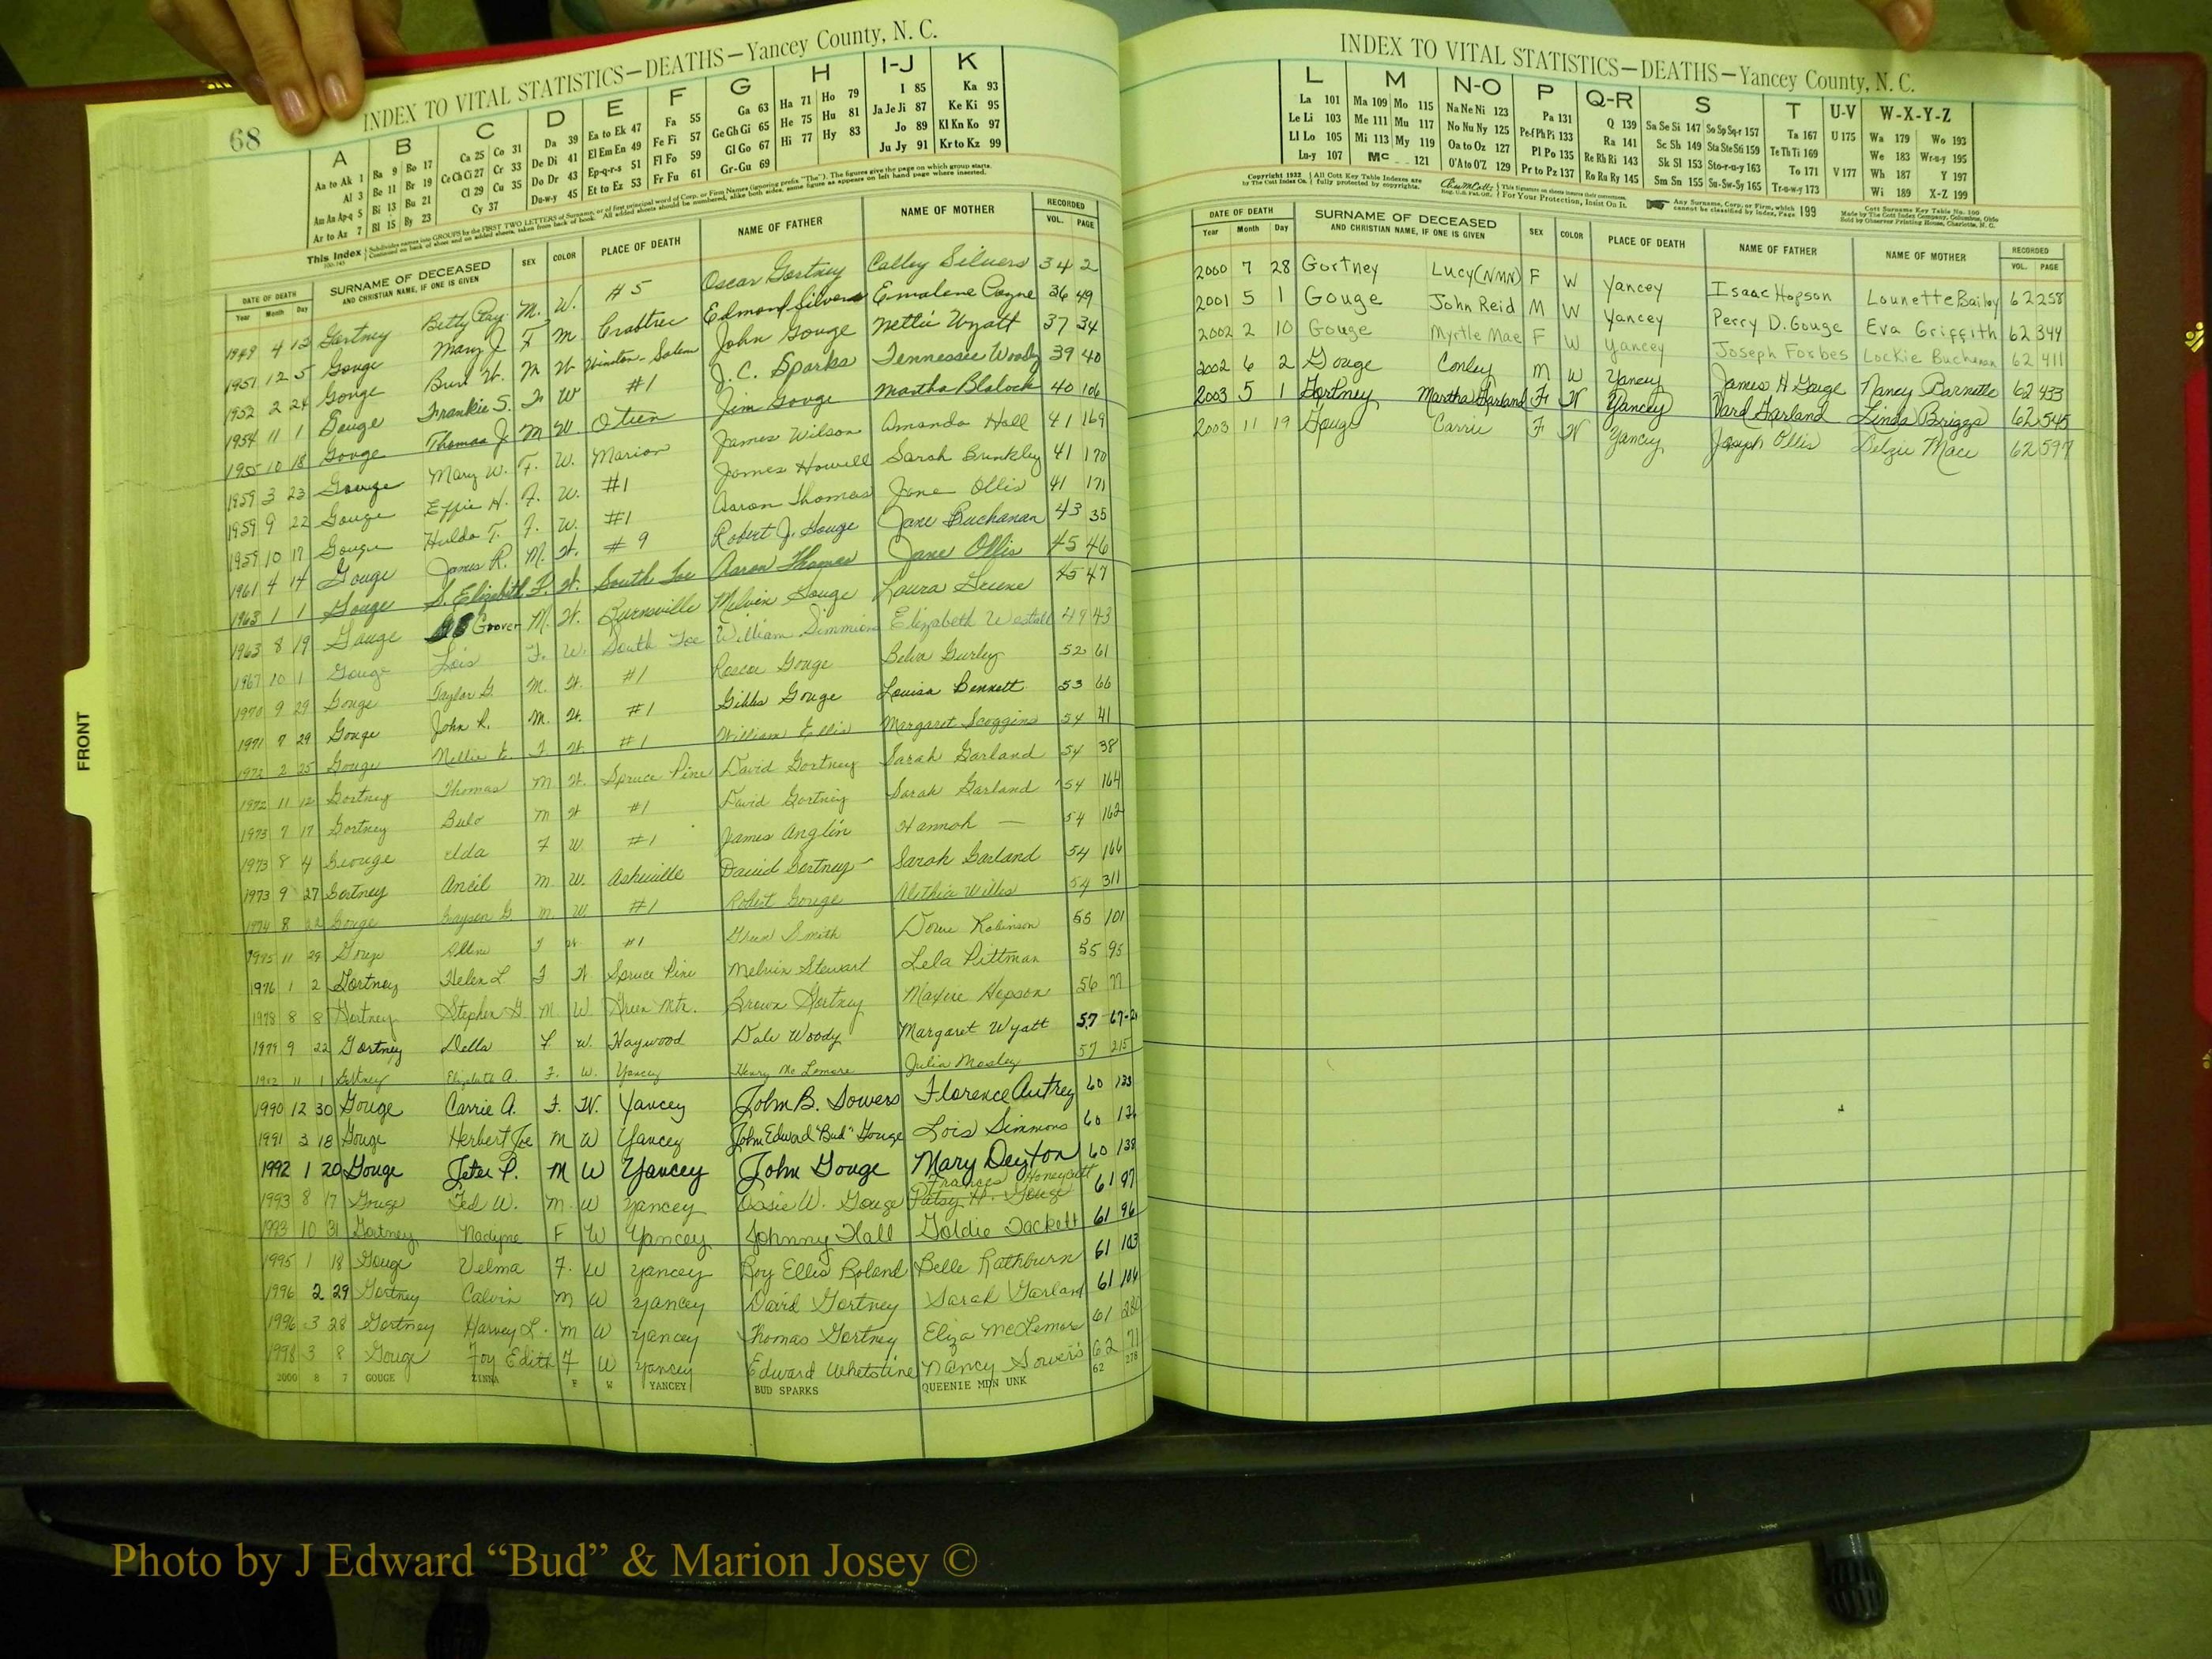 68
INDEX TO VITAL STATISTICS—DEATHS—Yancey County, N. C.
A B C D E F G H I-J K
Aa to Ak 1 Ba 9 Bo 17 Ca 25 Co 31 Da 39 Ea to Ek 47 Fa 55 Ga 63 Ha 71 Ho 79 I 85 Ka 93
Al 3 Be 11 Br 19 Ce Ch Ci 27 Cr 33 De Di 41 El Em En 49 Fe Fi 57 Ge Gh Gi 65 He 75 Hu 81 Ja Je Ji 87 Ke Ki 95
Am An Ap-q 5 Bi 13 Bu 21 Cl 29 Cu 35 Do Dr 43 Ep-q-r-s 51 Fl Fo 59 Gl Go 67 Hi 77 Hy 83 Jo 89 Kl Kn Ko 97
Ar to Az 7 Bl 15 By 23 Cy 37 Du-w-y 45 Et to Ez 53 Fr Fu 61 Gr-Gu 69 Ju Jy 91 Kr to Kz 99
This Index
DATE OF DEATH SURNAME OF DECEASED SEX COLOR PLACE OF DEATH NAME OF FATHER NAME OF MOTHER RECORDED
Year Month Day AND CHRISTIAN NAME, IF ONE IS GIVEN VOL. PAGE
1949 4 13 Gortney Betty M. W. #5 Oscar Gortney Calley Silvers 34 2
1951 12 5 Gouge Mary J. F M Crabtree Edmond Silvers Emalene Payne 36 49
1952 2 24 Gouge M W Winston-Salem John Gouge Nettie Wyatt 37 34
1954 11 1 Gouge Frankie S. F W #1 J. C. Sparks Tennessee Woody 39 40
1955 10 18 Gouge Thomas J. M W Oteen Jim Gouge Martha Blalock 40 106
1959 3 23 Gouge Mary W. F. W. Marion James Wilson Amanda Hall 41 169
1959 9 22 Gouge Effie H. F. W. #1 James Howell Sarah Brinkley 41 170
1959 10 17 Gouge Hulda T. F. W. #1 Aaron Thomas Jane Ollis 41 171
1961 4 14 Gouge James R. M. W. #9 Robert J. Gouge Jane Buchanan 43 35
1963 1 1 Gouge S. Elizabeth F. W. South Toe Aaron Thomas Jane Ollis 45 46
1963 8 19 Gouge Grover M. W. Burnsville Melvin Gouge Laura Greene 45 47
1967 10 1 Gouge Lois F. W. South Toe William Simmions Elizabeth Westall 49 43
1970 9 29 Gouge Taylor G M. W. #1 Roscoe Gouge Belva Gurley 52 61
1971 7 29 Gouge John R. M. W. #1 Gibbs Gouge Louisa Bennett 53 66
1972 2 25 Gouge Nellie E. F W. #1 William Ellis Margaret Scoggins 54 41
1972 11 12 Gortney Thomas M W. Spruce Pine David Gortney Sarah Garland 54 38
1973 7 17 Gortney M W #1 David Gortney Sarah Garland 54 164
1973 8 4 George Ida F W. #1 James Anglin Hannah — 54 162
1973 9 27 Gortney Ancil M W. Asheville David Gortney Sarah Garland 54 166
1974 8 22 Gouge Grayson G M. W. #1 Robert Gouge Alithia Willis 54 311
1975 11 29 Gouge F W #1 Smith Robinson 55 101
1976 1 2 Gortney Helen L F W Spruce Pine Melvin Stewart Lela Pittman 55 95
1978 8 8 Gortney Stephen G. M W. Green Mtn. Brown Gortney Maxine Hopson 56 77
1979 9 22 Gortney Della F W. Haywood Dale Woody Margaret Wyatt 57 67
11 1 Gortney Elizabeth A. F. W. Yancey Henry McLemore Julia Mosley 57 215
1990 12 30 Gouge Carrie A. F. W. Yancey John B. Sowers Florence Autrey 60 133
1991 3 18 Gouge Herbert Joe M W Yancey John Edward "Bud" Gouge Lois Simmons 60
1992 1 20 Gouge Jeter P. M W Yancey John Gouge Mary Deyton 60 138
Frances Honeycutt
1993 8 17 Gouge Ted W. M. W Yancey Ossie W. Gouge Patsy H. Gouge 61 97
1993 10 31 Gortney Nadyne F W Yancey Johnny Hall Goldie Tackett 61 96
1995 1 18 Gouge Velma F. W Yancey Roy Ellis Boland Belle Rathburn 61 103
1996 2 29 Gortney Calvin M W Yancey David Gortney Sarah Garland 61 106
1996 3 28 Gortney Harvey L. M W Yancey Thomas Gortney Eliza McLemore 61 280
1998 3 8 Gouge Foy Edith F W Yancey Edward Whetstine Nancy Sowers 62 71
2000 8 7 GOUGE ZINNA F W YANCEY BUD SPARKS QUEENIE MDN UNK 62 278
FRONT
INDEX TO VITAL STATISTICS—DEATHS—Yancey County, N. C.
L M N-O P Q-R S T U-V W-X-Y-Z
La 101 Ma 109 Mo 115 Na Ne Ni 123 Pa 131 Q 139 Sa Se Si 147 So Sp Sq-r 157 Ta 167 U 175 Wa 179 Wo 193
Le Li 103 Me 111 Mu 117 No Nu Ny 125 Pe-f Ph Pi 133 Ra 141 Sc Sh 149 Sta Ste Sti 159 Te Th Ti 169 We 183 Wr-u-y 195
Ll Lo 105 Mi 113 My 119 Oa to Oz 127 Pl Po 135 Re Rh Ri 143 Sk Sl 153 Sto-r-u-y 163 To 171 V 177 Wh 187 Y 197
Lu-y 107 Mc 121 O'A to O'Z 129 Pr to Pz 137 Ro Ru Ry 145 Sm Sn 155 Su-Sw-Sy 165 Tr-u-w-y 173 Wi 189 X-Z 199
DATE OF DEATH SURNAME OF DECEASED SEX COLOR PLACE OF DEATH NAME OF FATHER NAME OF MOTHER RECORDED
Year Month Day AND CHRISTIAN NAME, IF ONE IS GIVEN VOL. PAGE
2000 7 28 Gortney Lucy (NMN) F W Yancey Isaac Hopson Lounette Bailey 62 258
2001 5 1 Gouge John Reid M W Yancey Perry D. Gouge Eva Griffith 62 344
2002 2 10 Gouge Myrtle Mae F W Yancey Joseph Forbes Lockie Buchanan 62 411
2002 6 2 Gouge Conley M W Yancey James H Gouge Nancy Barnette 62 433
2003 5 1 Gortney Martha Garland F W Yancey Vard Garland Linda Briggs 62 545
2003 11 19 Gouge Carrie F W Yancey Joseph Ollis Delzie Mace 62 597
Photo by J Edward “Bud” & Marion Josey ©